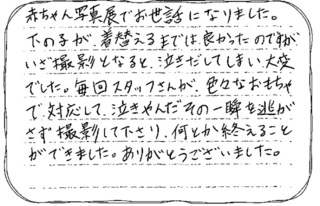 赤ちゃん写真展でお世話になりました。
下の子が、着替えるまでは良かったのですが
いざ撮影となると、泣きだしてしまい大変
でした。毎回スタッフさんが、色々なおもちゃ
で対応して、泣きやんだその一瞬を逃が
さず撮影して下さり、何とか終えること
ができました。ありがとうございました。